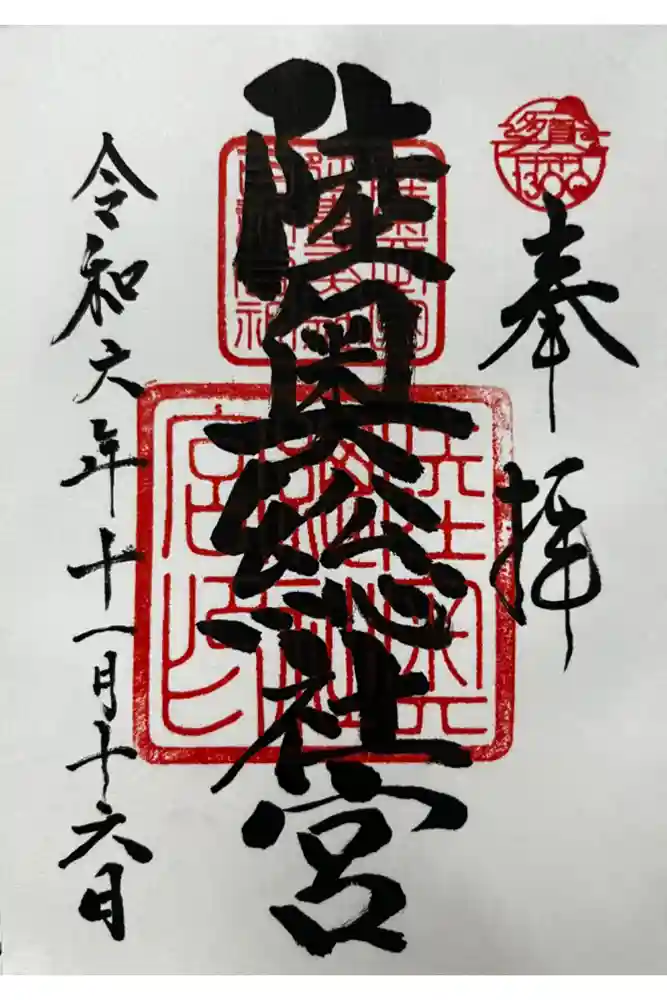 多賀城
1300
奉拝
陸奥総社宮
令和六年十一月十六日